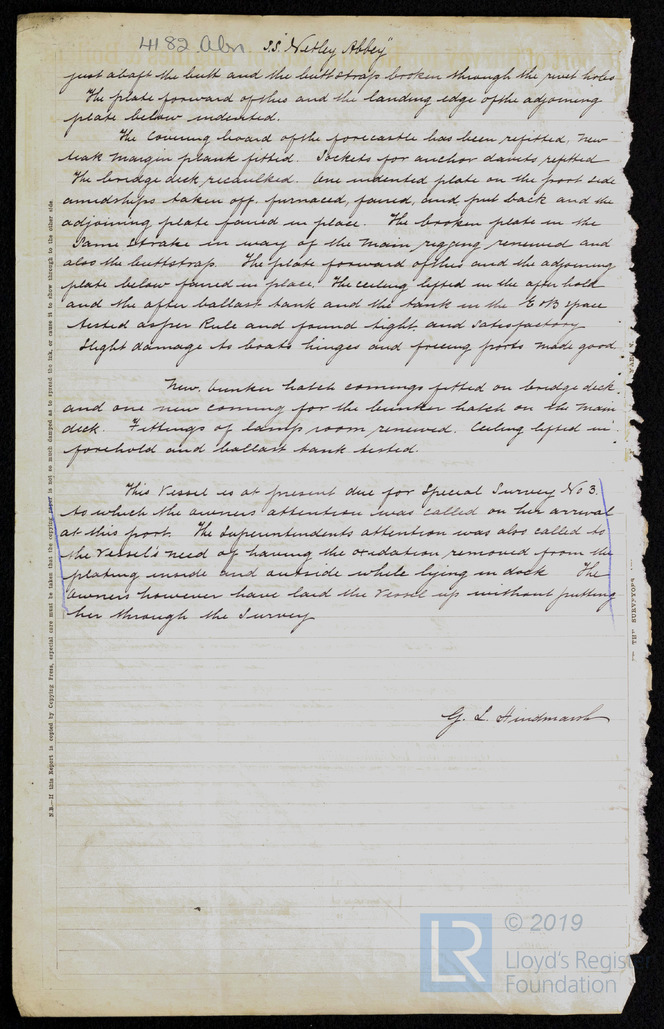 4182 Abn. S.S. "Netley Abbey"
just abaft the butt and the buttstrap broken through the rivet holes
The plate forward of this and the landing edge of the adjoining
plate below indented.
The covering board of the forecastle has been refitted, new
teak margin plank fitted. Sockets for anchor davits refitted
The bridge deck, recaulked. One indented plate on the port side
amidships taken off, furnaced, faired, and put back and the
adjoining plate faired in place. The broken plate in the
same strake in way of the main rigging renewed and
also the buttstrap. The plate forward of this and the adjoining
plate below faired in place. The ceiling lifted in the after hold
and the after ballast tank and the tank in the E & B space
tested as per Rule and found tight, and satisfactory
Slight damage to boats hinges and freeing ports made good.
New, bunker hatch comings fitted on bridge deck
and one new coming for the bunker hatch on the main
deck. Fittings of lamp room renewed. Ceiling lifted in
forehold and ballast tank tested.
This Vessel is at present due for Special Survey No 3.
to which the owners attention was called on her arrival
at this port. The Superintendents attention was also called to
the Vessel's need of having the oxidation removed from the
plating inside and outside while lying in dock The
Owners however have laid the Vessel up without putting
her through the Survey
G. L. Hindmarsh
N.B.—If this Report is copied by Copying Press, especial care must be taken that the copying paper is not so much damped as to spread the ink, or cause it to show through to the other side.
THE SURVEYORS
LR
© 2019
Lloyd's Register
Foundation